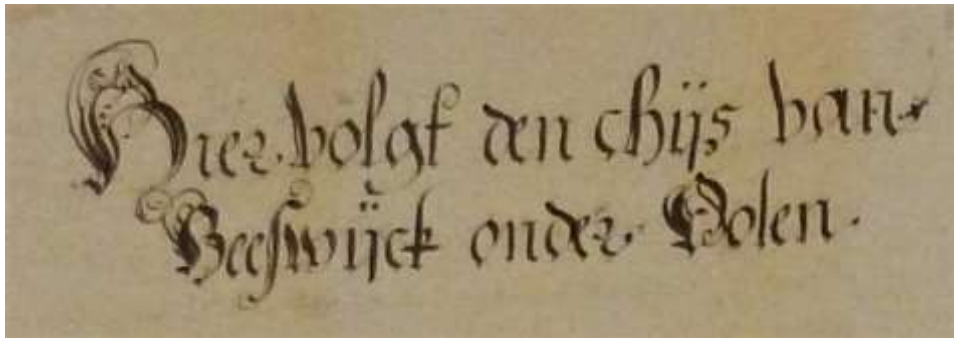 Hier volgt den chijs van
Beeswijck onder Polen.